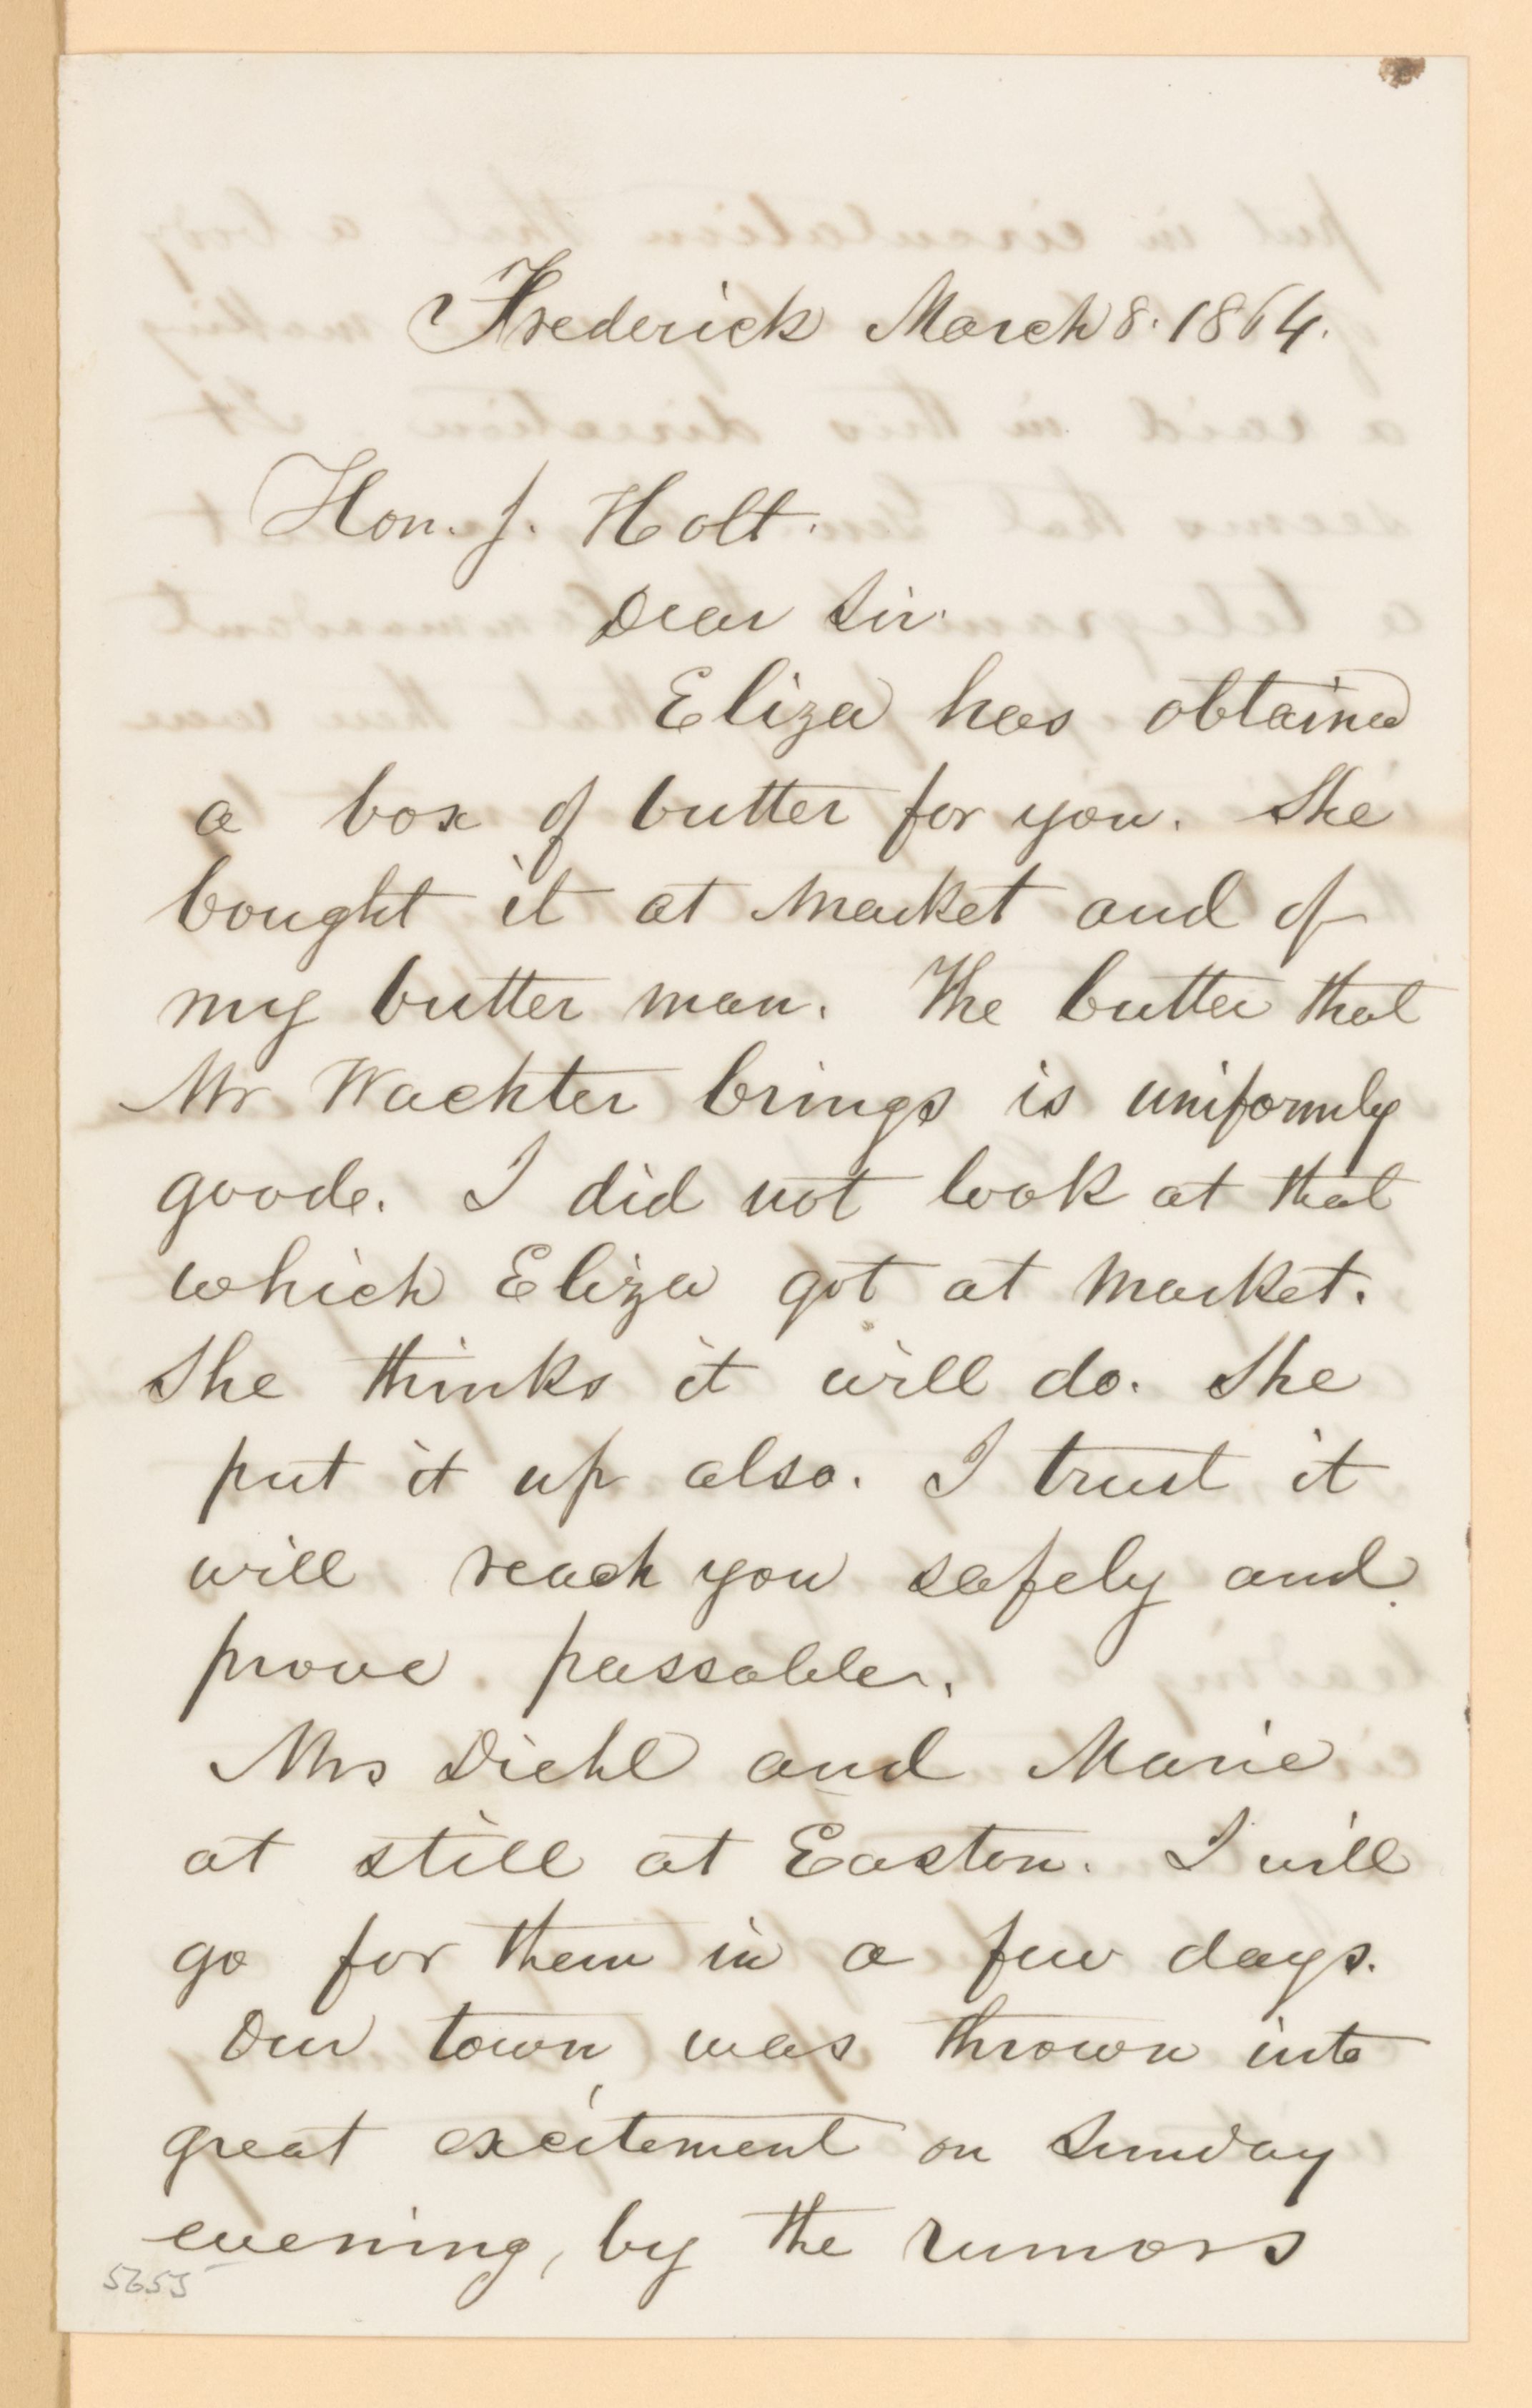 Frederick March 8. 1864.
Hon. J. Holt.
Dear Sir.
Eliza has obtained
a box of butter for you. She
bought it at market and of
my butter man. The butter that
Mr Wachter brings is uniformly
goode. I did not look at that
which Eliza got at market.
She thinks it will do. She
put it up also. I trust it
will reach you safely and
prove passable.
Mrs Diehl and Marie
at still at Easton. I will
go for them in a few days.
Our town was thrown into
great excitement on Sunday
evening, by the rumors
5655